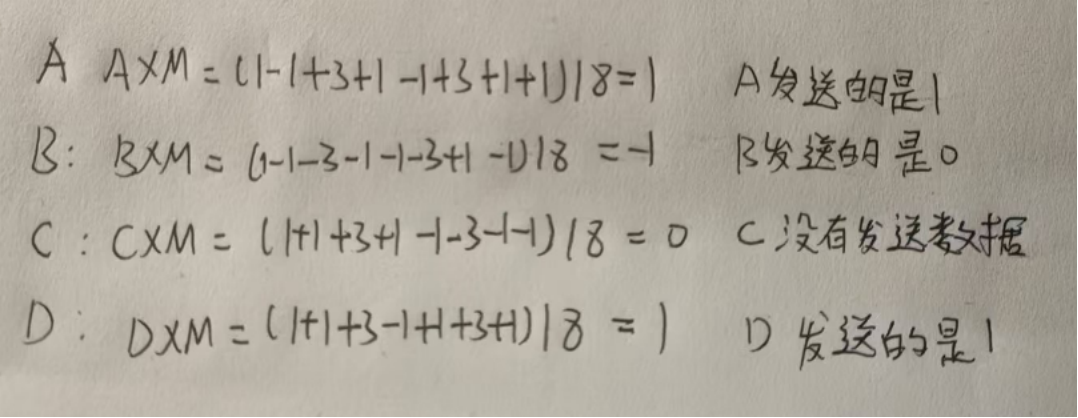 A AXM = (1-1+3+1-1+3+1+1)/8=1 A发送的是1
B: BXM = (1-1-3-1-1-3+1-1)/8 =-1 B发送的是0
C : CXM = (1+1+3+1-1-3-1-1)/8 = 0 C没有发送数据
D : DXM = (1+1+3-1+1+3+1)/8 = 1 D发送的是1